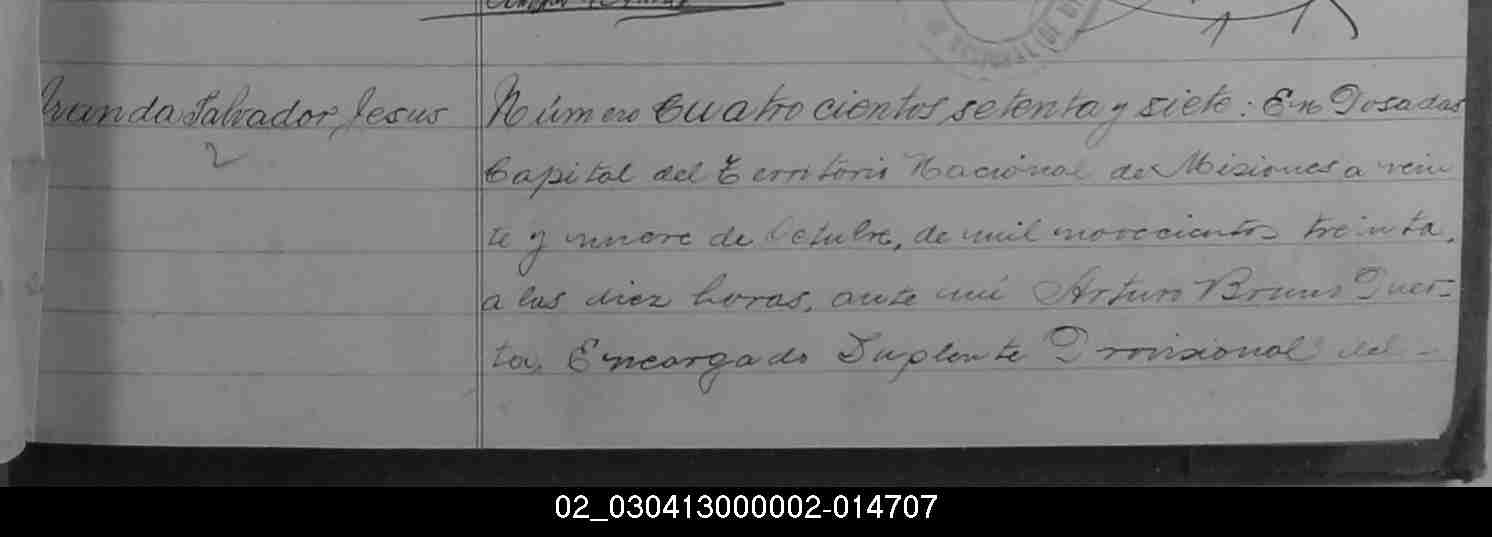 Número Cuatrocientos setenta y siete: En Posadas
Capital del Territorio Nacional de Misiones a vein
te y nueve de Octubre, de mil novecientos treinta,
a las diez horas, ante mí Arturo Bruno Puer-
ta, Encargado Suplente Provisional del -
Salvador Jesus
2
02_030413000002-014707